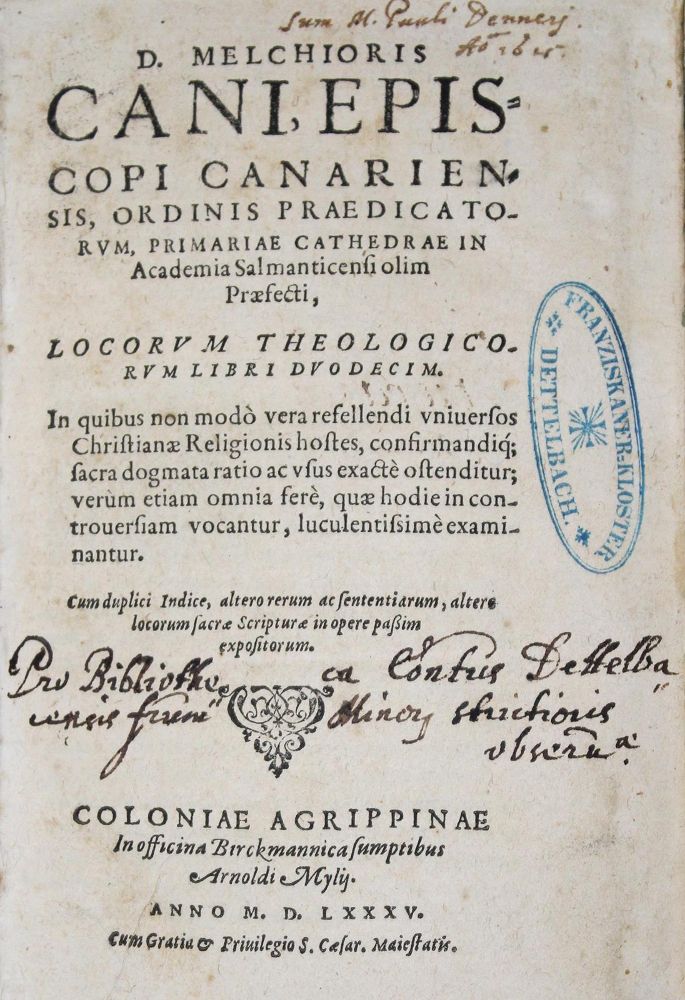 Sum M. Pauli Dennerj.
Aō 16
D. MELCHIORIS
CANI, EPIS-
COPI CANARIEN-
SIS, ORDINIS PRAEDICATO-
RVM, PRIMARIAE CATHEDRAE IN
Academia Salmanticenſi olim
Præfecti,
LOCORVM THEOLOGICO-
RVM LIBRI DVODECIM.
In quibus non modò vera refellendi vniuerſos
Chriſtianæ Religionis hoſtes, confirmandiq́;
ſacra dogmata ratio ac vſus exactè oſtenditur;
verùm etiam omnia ferè, quæ hodie in con-
trouerſiam vocantur, luculentiſsimè exami-
nantur.
Cum duplici Indice, altero rerum ac ſententiarum, altero
locorum ſacræ Scripturæ in opere paßim
expoſitorum.
Pro Bibliothe ca Contus Dettelba
censis frum Minorj strictioris
obseruæ.
COLONIAE AGRIPPINAE
In officina Birckmannica ſumptibus
Arnoldi Mylij.
ANNO M. D. LXXXV.
Cum Gratia & Priuilegio S. Cæſar. Maieſtatis.
FRANZISKANER-KLOSTER
DETTELBACH.